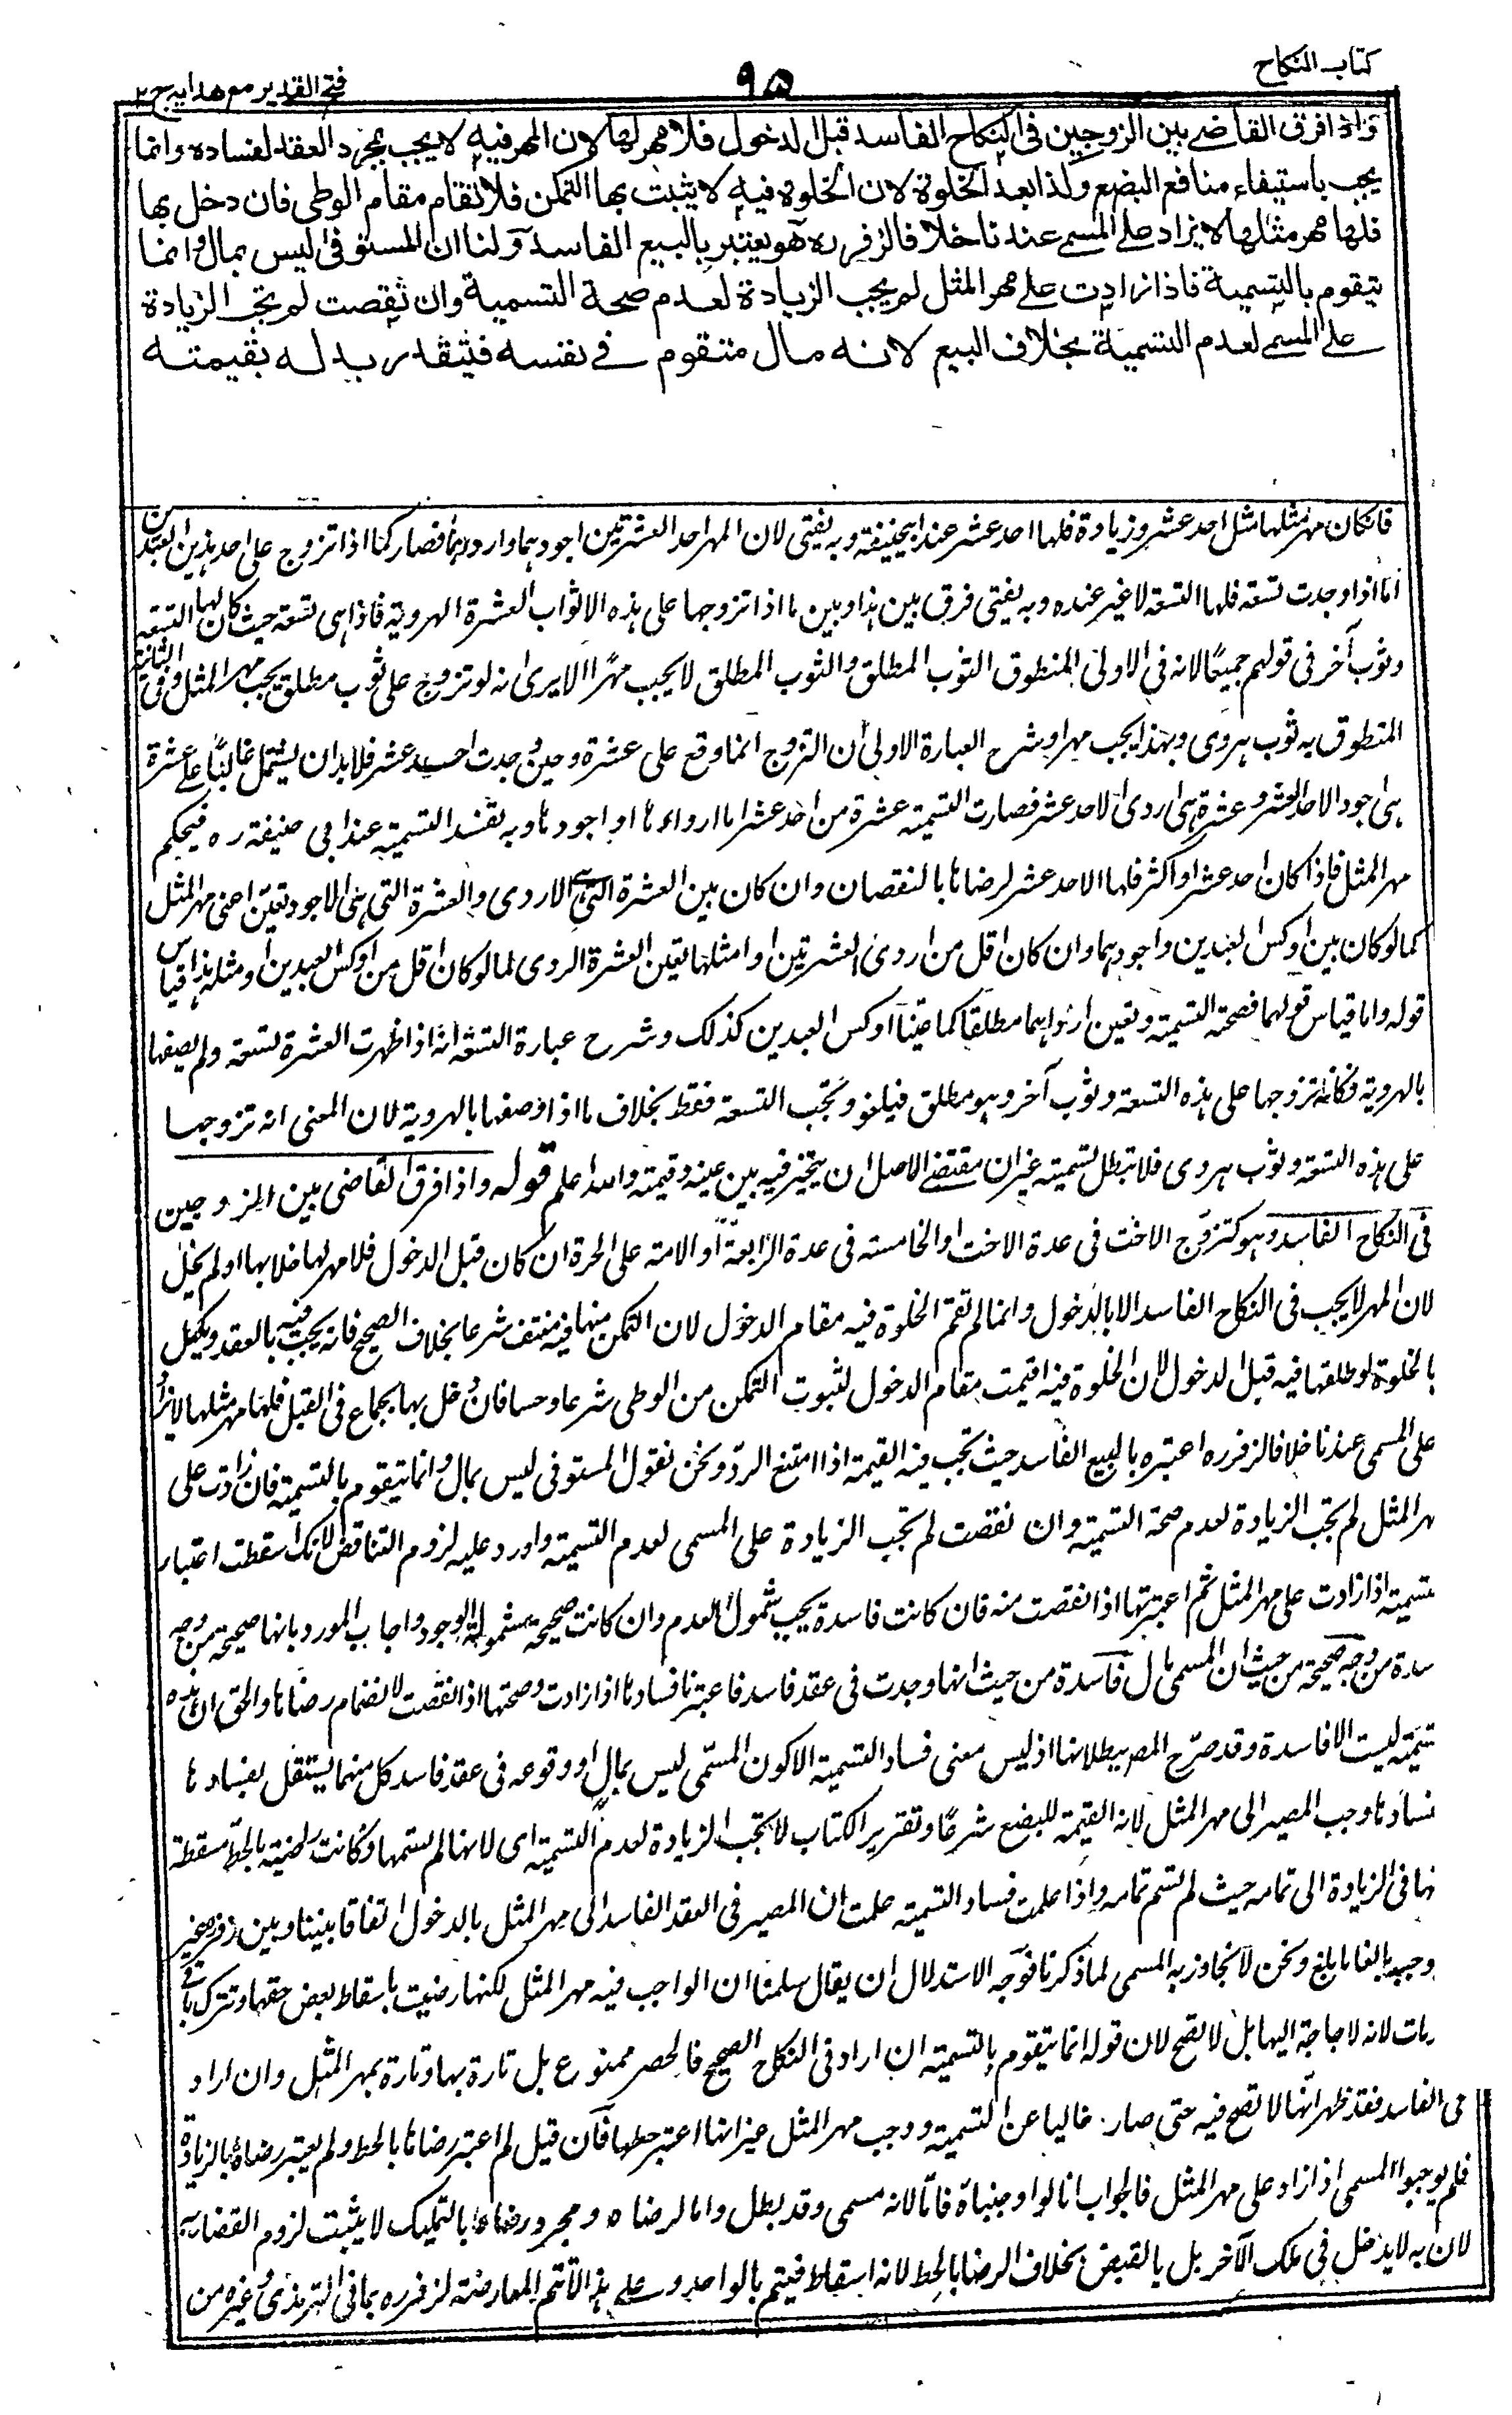 كتاب النكاح
٩٥
فتح القدير مع هدايه ج ٢
واذا فرق القاضي بين الزوجين في النكاح الفاسد قبل الدخول فلا مهر لها لان المهر فيه لا يجب بمجرد العقد لفساده وانما
يجب باستيفاء منافع البضع وكذا بعد الخلوة لان الخلوة فيه لا يثبت بها التمكن فلا تقام مقام الوطى فان دخل بها
فلها مهر مثلها لا يزاد على المسمى عندنا خلافا لزفر ره هو يعتبر بالبيع الفاسد ولنا ان المستوفى ليس بمال وانما
يتقوم بالتسمية فاذا زادت على مهر المثل لم يجب الزيادة لعدم صحة التسمية وان نقصت لم تجب الزيادة
على المسمى لعدم التسمية بخلاف البيع لانه مال متقوم في نفسه فيتقدر بدله بقيمته
فان كان مهر مثلها مثل احد عشر وزيادة فلها احد عشر عند ابيحنيفة وبه يفتى لان المهر احد العشرتين اجودهما واردهما فصار كما اذا تزوج على احد هذين العبدين
اما اذا وجدت تسعة فلها التسعة لا غير عنده وبه يفتى فرق بين هذا وبين ما اذا تزوجها على هذه الاثواب العشرة الهروية فاذا هى تسعة حيث كان لها التسعة
وثوب آخر فى قولهم جميعًا لانه فى الاولى المنطوق الثوب المطلق والثوب المطلق لا يجب مهرًا الا يرى انه لو تزوج على ثوب مطلق يجب مهر المثل وفى الثانية
المنطوق به ثوب هروى وبهذا يجب مهرا وشرح العبارة الاولى ان التزوج انما وقع على عشرة وحين وجدت احد عشر فلا بد ان يشتمل غالبًا على عشرة
هى اجود الاحد العشر وعشرة هى اردى الاحد عشر فصارت التسمية عشرة من احد عشر اما ارداءها او اجودها وبه تفسد التسمية عند ابى حنيفة ره فيحكم
مهر المثل فاذا كان احد عشر او اكثر فلها الاحد عشر لرضاها بالنقصان وان كان بين العشرة التى هى الاردى والعشرة التى هى الاجود تعين اعنى مهر المثل
كما لو كان بين اوكس العبدين واجودهما وان كان اقل من اردى العشرتين او امثلها تعين العشرة الردى لما لو كان اقل من اوكس العبدين او مثله هذا قياس
قوله واما قياس قولهما فصحة التسمية وتعين اردواهما مطلقا كما عينا اوكس العبدين كذلك وشرح عبارة التسعة انه اذا ظهرت العشرة تسعة ولم يصفها
بالهروية فكانه تزوجها على هذه التسعة وثوب آخر وهو مطلق فيلغو وتجب التسعة فقط بخلاف ما اذا وصفها بالهروية لان المعنى انه تزوجها
على هذه التسعة وثوب هروى فلا تبطل تسميته غير ان مقتضى الاصل ان يتخير فيه بين عينه وقيمته والله اعلم قوله واذا فرق القاضى بين الزوجين
فى النكاح الفاسد وهو كتزوج الاخت فى عدة الاخت او الخامسة فى عدة الرابعة او الامة على الحرة ان كان قبل الدخول فلا مهر لها خلا بها او لم يخل
لان المهر لا يجب فى النكاح الفاسد الا بالدخول وانما لم تقم الخلوة فيه مقام الدخول لان التمكن منها فيه منتف شرعا بخلاف الصحيح فانه يجب فيه بالعقد ويكمل
بالخلوة لو طلقها فيه قبل الدخول لان الخلوة فيه اقيمت مقام الدخول لثبوت التمكن من الوطى شرعا وحسا فان دخل بها بجماع فى القبل فلها مهر مثلها لا يزاد
على المسمى عندنا خلافا لزفر ره اعتبره بالبيع الفاسد حيث تجب فيه القيمة اذا امتنع الردّ ونحن نقول المستوفى ليس بمال وانما يتقوم بالتسمية فان زادت على
هر المثل لم تجب الزيادة لعدم صحة التسمية وان نقصت لم تجب الزيادة على المسمى لعدم التسمية واورد عليه لزوم التناقض لانك اسقطت اعتبار
تسمية اذا زادت على مهر المثل ثم اعتبرتها اذا نقصت منه فان كانت فاسدة يجب شمول العدم وان كانت صحيحة فشمول الوجود واجاب المورد بانها صحيحة من وجه
سدة من وجه صحيحة من حيث ان المسمى مال فاسدة من حيث انها وجدت فى عقد فاسد فاعتبرنا فسادها اذا زادت وصحتها اذا نقصت لانضمام رضاها والحق ان هذه
تسمية ليست الا فاسدة وقد صرّح المصـ ببطلانها اذ ليس معنى فساد التسمية الا كون المسمّى ليس بمال او وقوعه فى عقد فاسد كل منهما يستقل بفسادها
فسادها وجب المصير الى مهر المثل لانه القيمة للبضع شرعًا وتقرير الكتاب لا تجب الزيادة لعدم التسمية اى لانها لم تسمها فكانت راضية بالحط مسقطة
لها فى الزيادة الى تمامه حيث لم تسم تمامه واذا علمت فساد التسمية علمت ان المصير فى العقد الفاسد الى مهر المثل بالدخول اتفاقا بيننا وبين زفر غير
وجبه بالغا ما بلغ ونحن لا نجاوز به المسمى لما ذكرنا فوجه الاستدلال ان يقال سلمنا ان الواجب فيه مهر المثل لكنها رضيت باسقاط بعض حقها وتترك باقى
رات لانه لا حاجة اليها بل لا تصح لان قوله انما يتقوم بالتسمية ان اراد فى النكاح الصحيح فالحصر ممنوع بل تارة بها وتارة بمهر المثل وان اراد
فى الفاسد فقد ظهر انها لا تصح فيه حتى صار خاليا عن التسمية ووجب مهر المثل غير انها اعتبر حطها فان قيل لم اعتبر رضاها بالحط ولم يعتبر رضاه بالزيادة
فلم يوجبوا المسمى اذا زاد على مهر المثل فالجواب انا لو اوجبناه فاما لانه مسمى وقد بطل واما لرضاه ومجرد رضاه بالتمليك لا يثبت لزوم القضاء به
لان به لا يدخل فى ملك الآخر بل بالقبض بخلاف الرضا بالحط لانه اسقاط فيتم بالواحد وعلى هذا لا تتم المعارضة لزفر ره بما فى الترمذى وغيره من